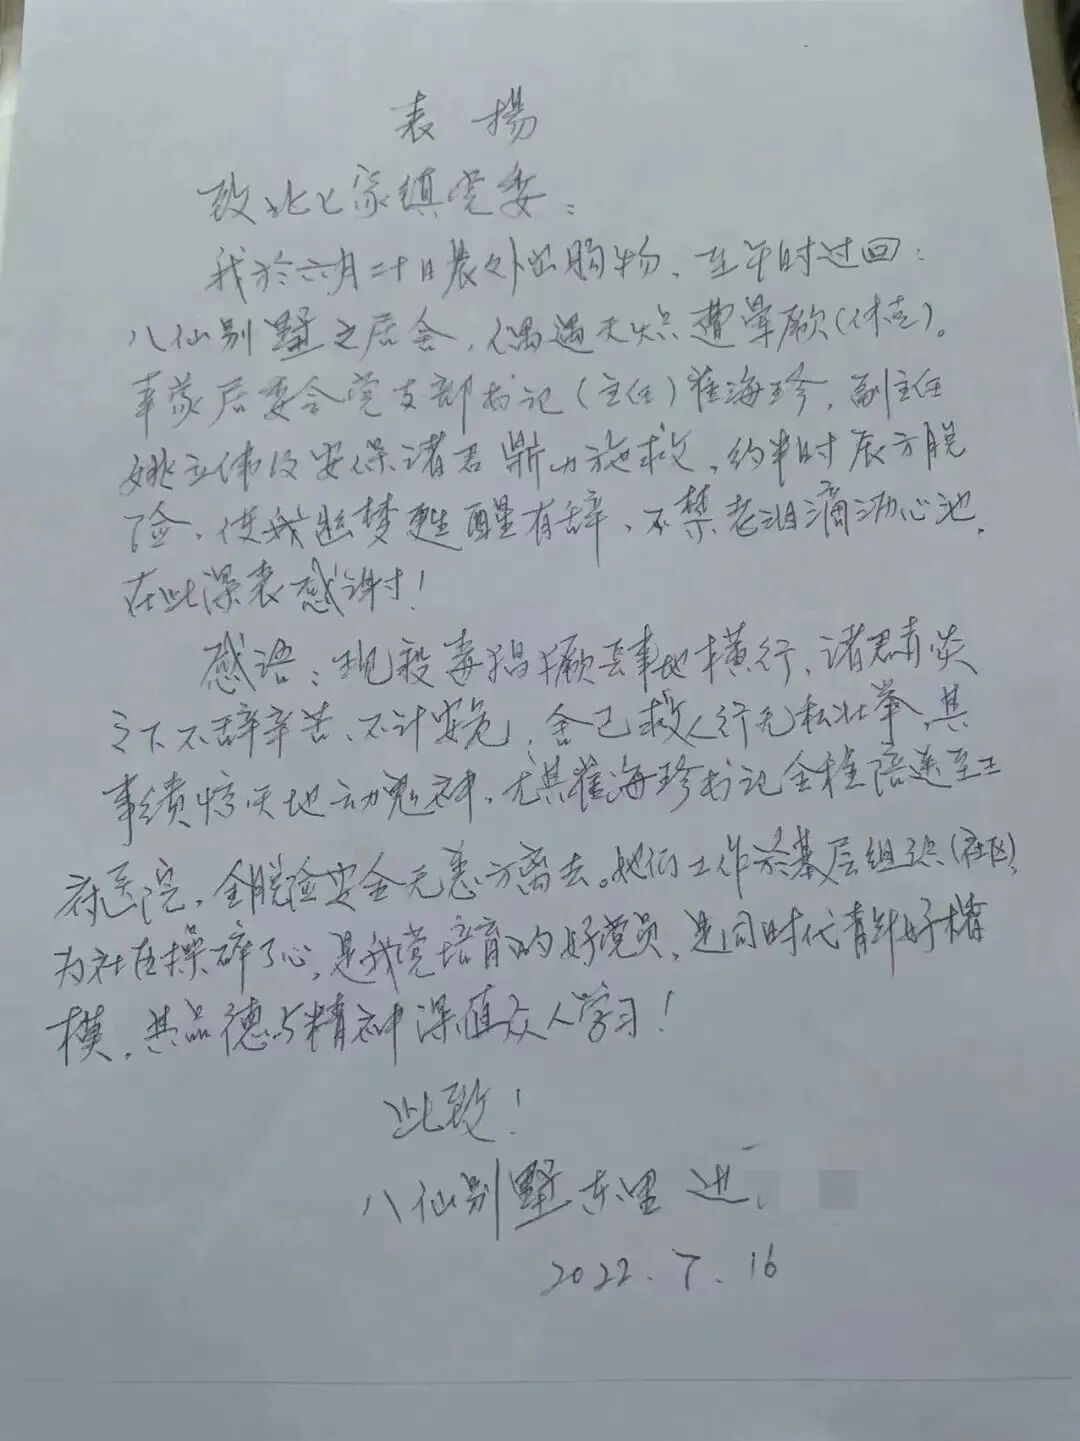 表 揚
致北七家鎮党委：
我於六月二十日晨外出购物、至午时过回：
八仙别墅之居舍，偶遇天炎遭暈厥(休克)。
幸蒙居委会党支部书记(主任)崔海珍，副主任
姚立伟及安保诸君鼎力施救，约半时辰方脱
险，使我幽梦甦醒有辞、不禁老泪滴沥心池.
在此深表感谢！
感语：现役毒猖獗 横行，诸君 炎
 下不辞辛苦、不计安危，舍己救人行无私壮举，其
事绩惊天地动鬼神，尤其崔海珍书记全程陪送至王
府医院，全脱险安全无恙方离去。她们工作於基层组织(社区)，
为社区操碎了心，是我党培育的好党员，是同时代青年好榜
模，其品德与精神深值众人学习！
此致！
八仙别墅东里
2022.7.16